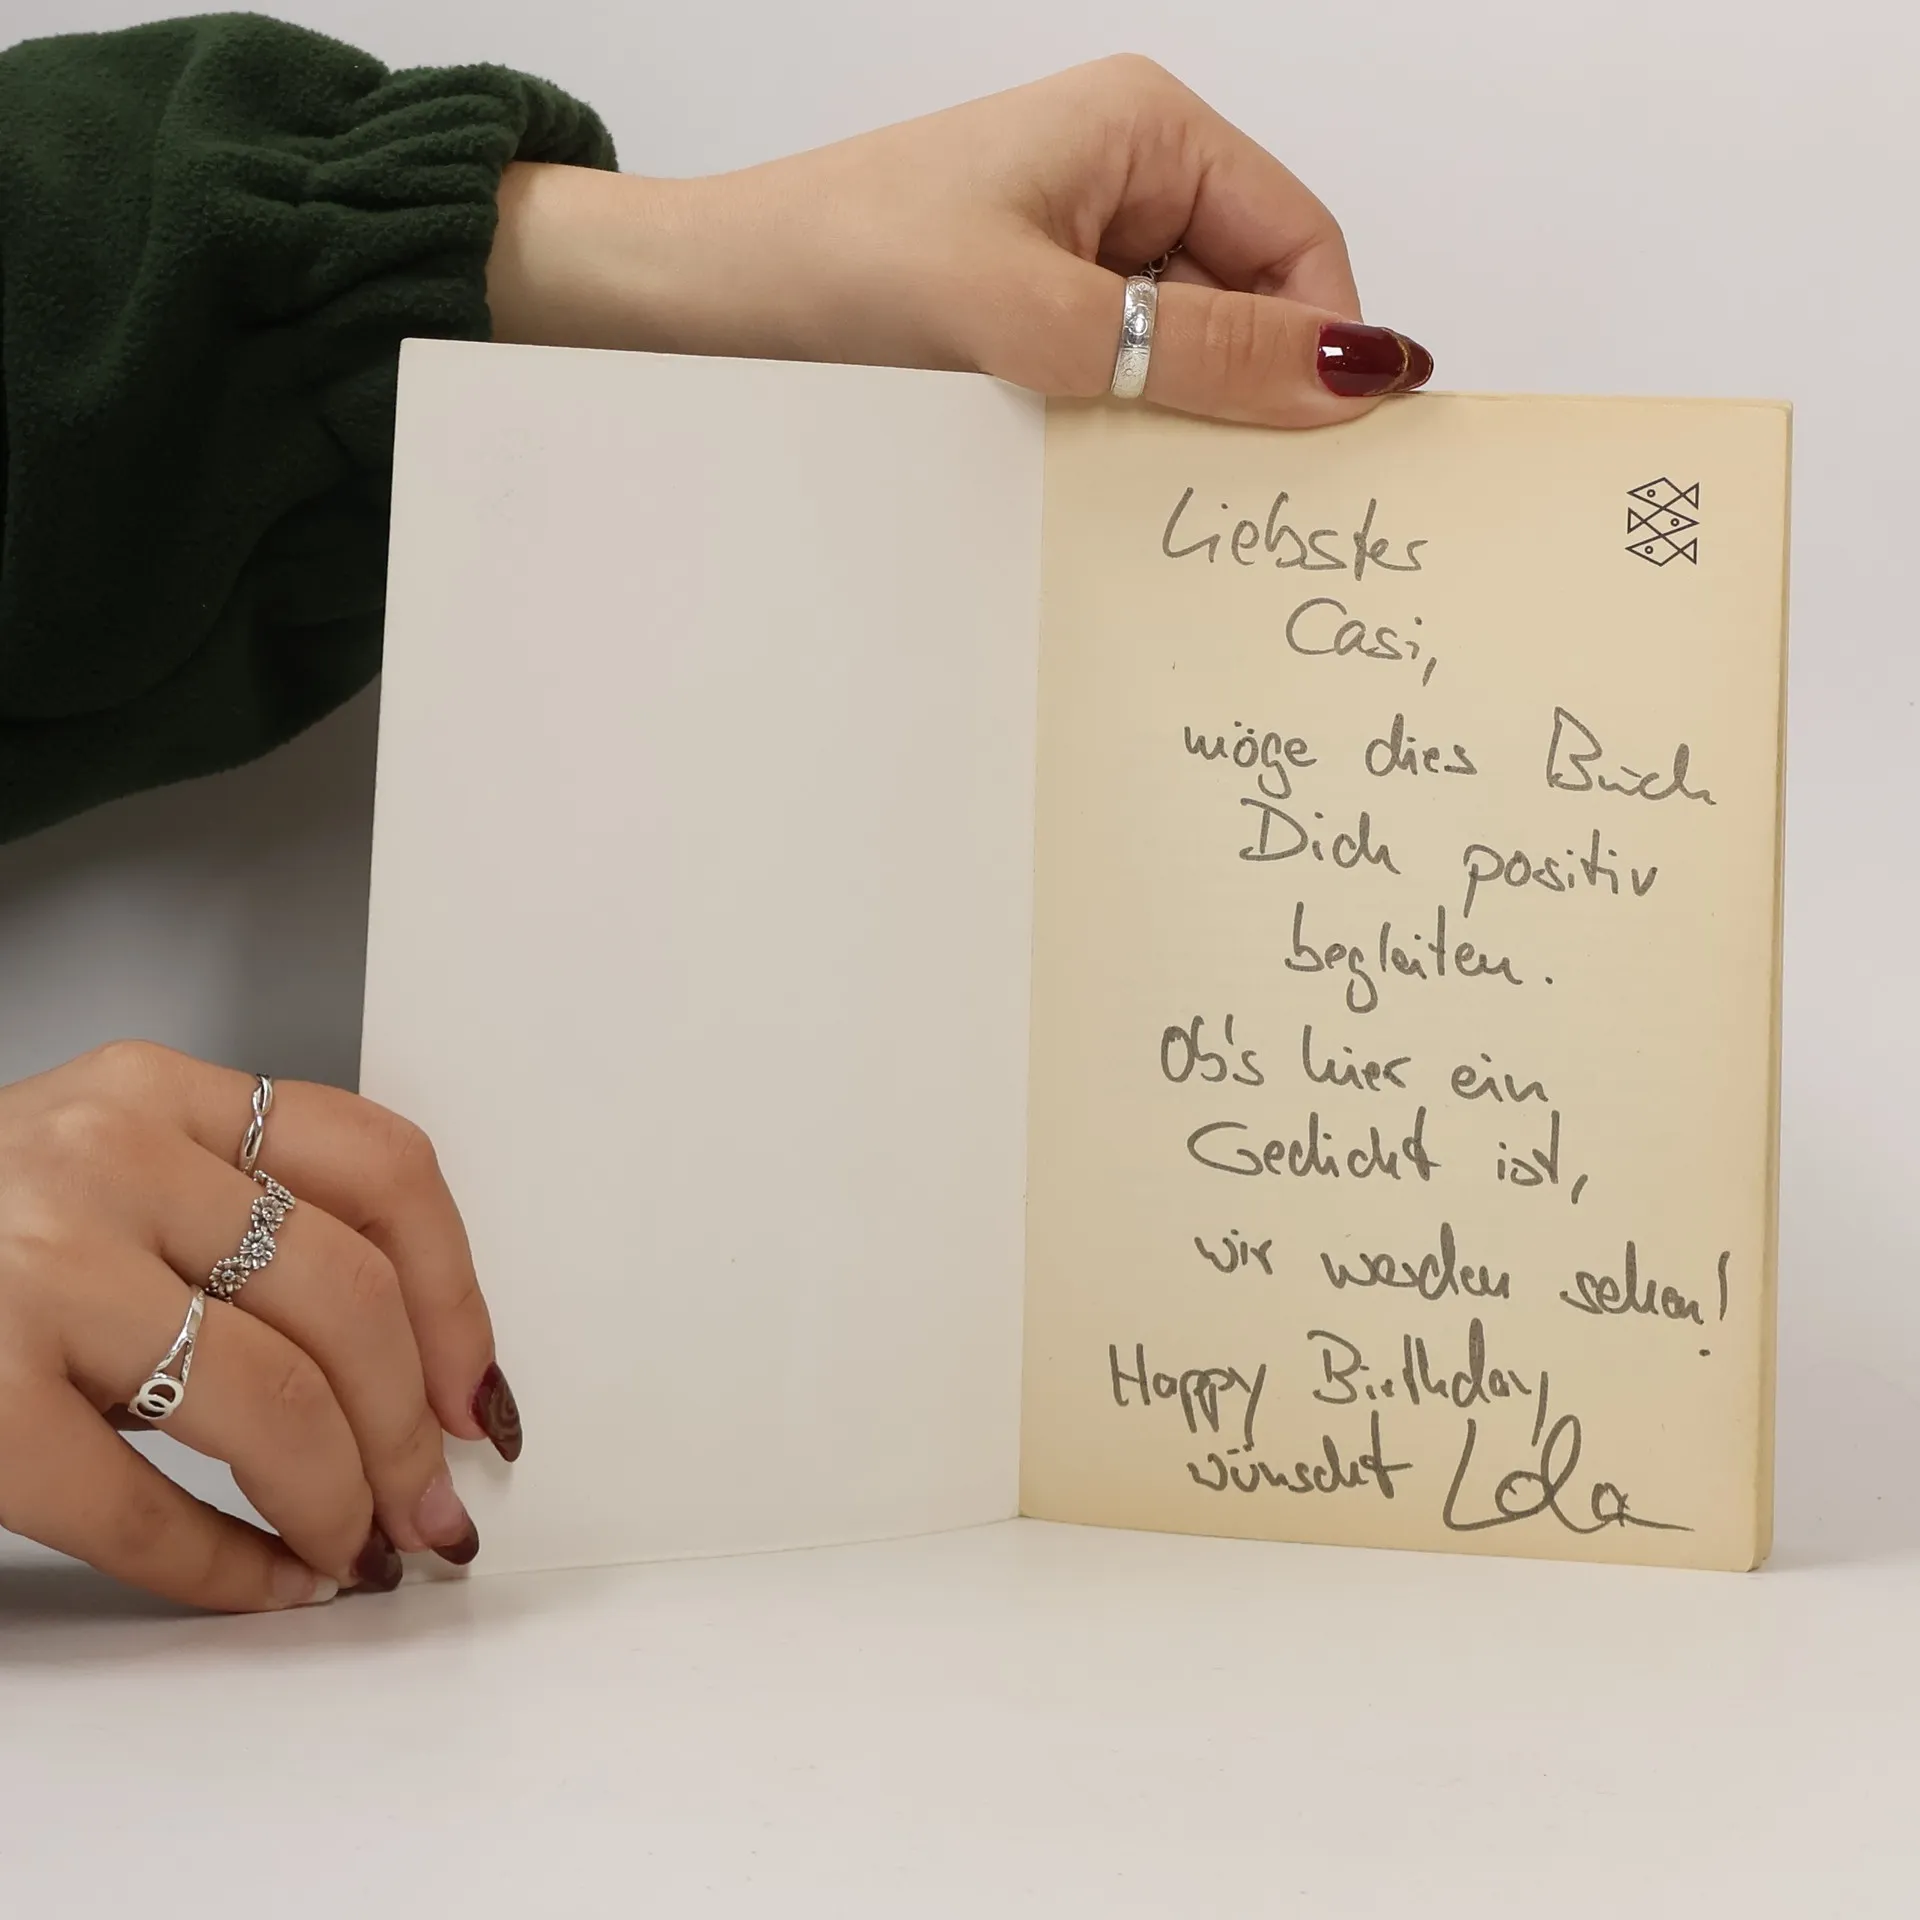 Liebster
Casi,
möge dies Buch
Dich positiv
begleiten.
Ob's hier ein
Gedicht ist,
wir werden sehen!
Happy Birthday
wünscht Lola